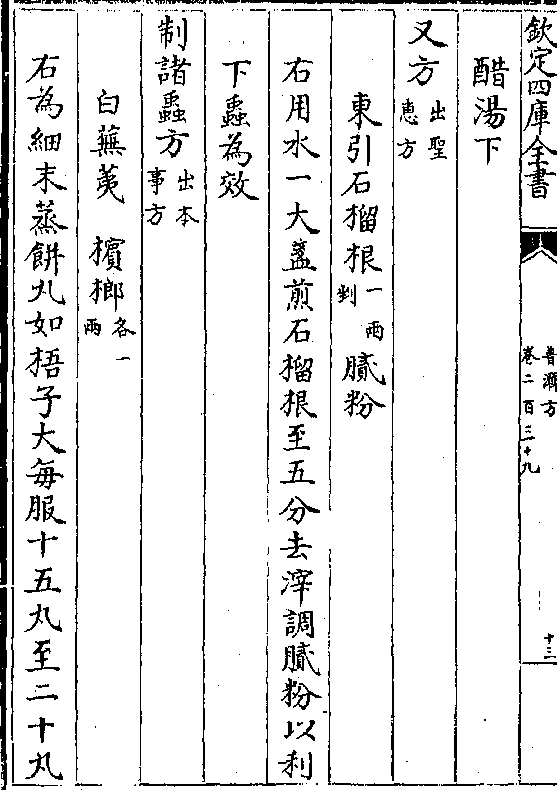 欽定四庫全書
普濟方
卷二百三十九
十三
醋湯下
又方出聖惠方
東引石榴根一兩剉 膩粉
右用水一大盞煎石榴根至五分去滓調膩粉以利
下蟲為效
制諸蟲方出本事方
白蕪荑 檳榔各一兩
右為細末蒸餅丸如梧子大每服十五丸至二十丸